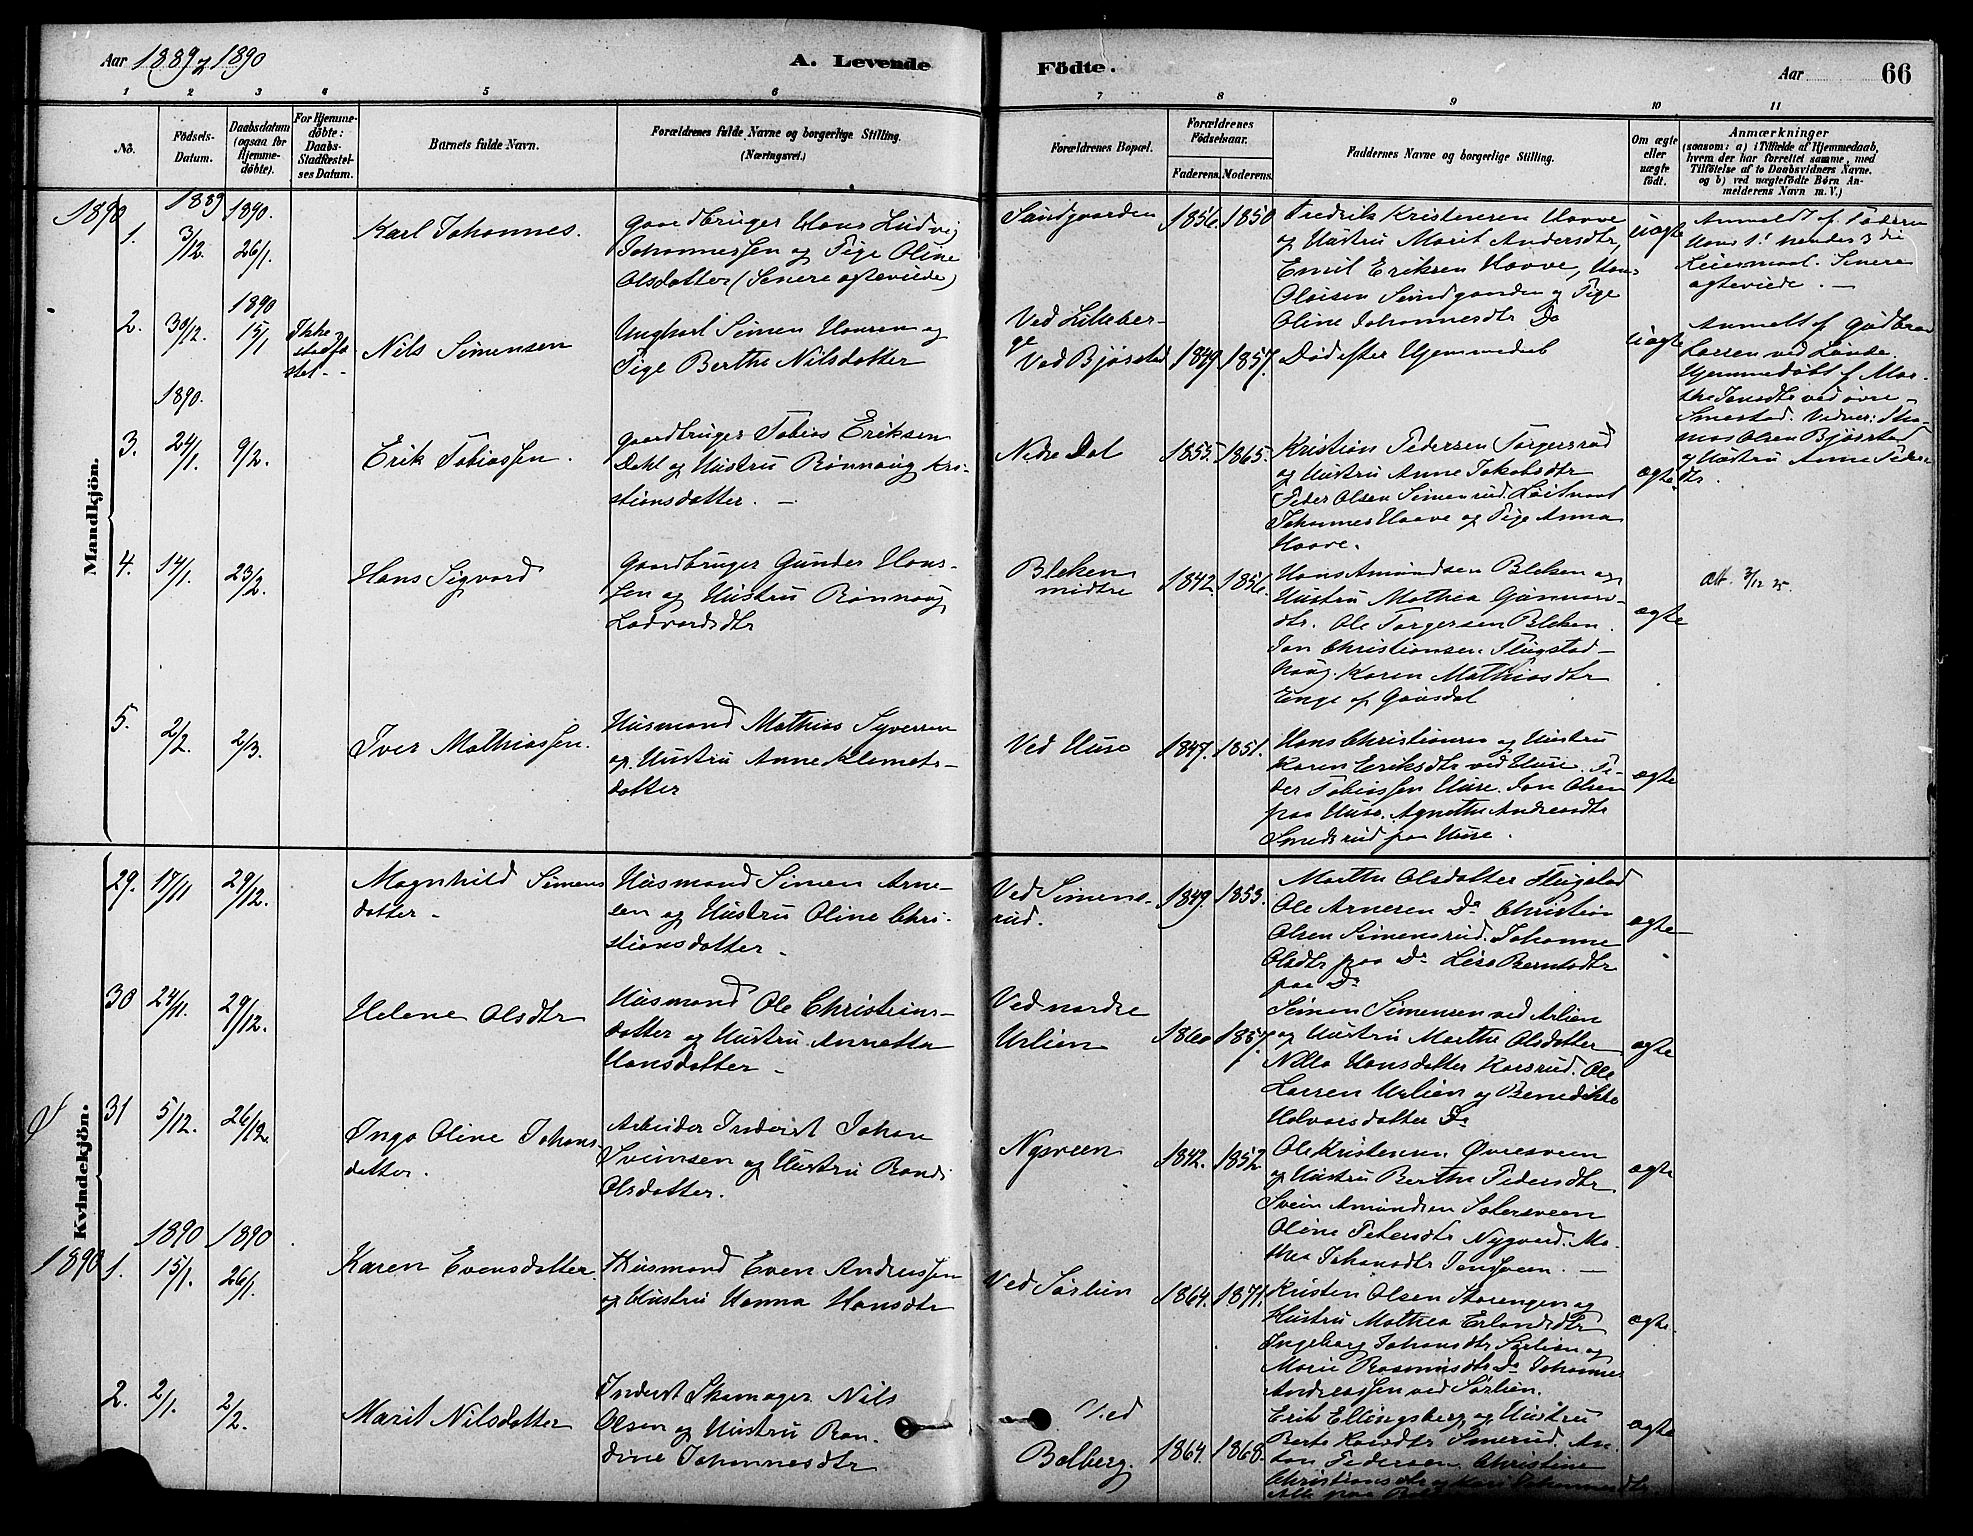 Aar 1889 og 1890
A. Levende
Fødte.
Aar
66
1 2 3 4 5 6 7 8 9 10 11
No.
Fødsels-
Datum.
Daabsdatum
(ogsaa for
Hjemme-
døbte).
For Hjemme-
døbte:
Daabs-
Stadfæstel-
ses Datum.
Barnets fulde Navn.
Forældrenes fulde Navne og borgerlige Stilling.
(Næringsvei.)
Forældrenes Bopæl.
Forældrenes
Fødselsaar.
Faderens. Moderens.
Faddernes Navne og borgerlige Stilling.
Om ægte
eller
uægte
født.
Anmærkninger
(saasom: a) i Tilfælde af Hjemmedaab,
hvem der har forrettet samme, med
Tilføielse af to Daabsvidners Navne.
og b) ved uægtefødte Børn An-
melderens Navn m. V.)
Mandkjön.
1890
1.
1889
3/12.
1890.
26/1.
Karl Johannes.
Gaardbruger Hans Ludvig
Johannessen og Pige Oline
Olsdatter (Senere ægteviede)
Sundgaarden
1856. 1850
Fredrik Kristensen Haave
og Hustru Marit Andersdtr,
Emil Eriksen Haave,
Olaisen Sundgaarden og Pige
Oline Johannesdtr Do
uægte
Anmeldt af Faderen
Hans 1ste hendes 3die
Leiermaal. Senere
ægteviede. —
2.
30/12.
1890
15/1
Ikke
stadfæ
stet. -
Nils Simensen
Ungkarl Simen Hansen og
Pige Berthe Nilsdatter
Ved Lilleber-
ge
Ved Bjørstad
1849. 1857.
Død efter Hjemmedaab
uægte
Anmeldt af Gudbran
Larsen ved Lunde.
Hjemmedøbt af Mar-
the Jensdtr ved øvre
Smestad. Vidner: Tho-
mas Olsen Bjørstad
og Hustru Anne Peders-
dtr.
1890.
3.
24/1.
9/2.
Erik Tobiassen.
Gaardbruger Tobias Eriksen
Dahl og Hustru Rønnaug Kri-
stiansdatter. —
Nedre Dal
1855. 1865.
Kristian Pedersen Torgersrud
og Hustru Anne Jakobsdtr
Peder Olsen Simenrud. Løitnant
Johannes Haave og Pige Anna
Haave.
ægte.
4.
14/1.
23/2.
Hans Sigvard
Gaardbruger Gunder Han-
sen og Hustru Rønnaug
Ladvardsdtr
Bleken
midtre
1842. 1856.
Hans Amundsen Bleken og
Hustru Mathea Gunnars-
dtr. Ole Torgersen Bleken.
Jon Christiansen Flugstad-
haug. Karen Mathiasdtr
Enge af Gausdal
ægte
Att. 3/12 25.
5.
2/2.
2/3.
Iver Mathiassen.
Husmand Mathias Syversen
og Hustru Anne Klemets-
datter
Ved Huse
1847. 1851.
Hans Christiansen og Hustru
Karen Eriksdtr ved Huse. Pe-
der Tobiassen Huse. Jon Olsen
paa Huse. Agnethe Andreasdtr
Smedsrud paa Huse.
ægte
Kvindekjön.
29.
17/11
29/12.
Magnhild Simens
datter -
Husmand Simen Arne-
sen og Hustru Oline Chri-
stiansdatter -
Ved Simens-
rud.
1849. 1853.
Marthe Olsdatter Flugstad
Ole Arnesen Do Christian
Olsen Simensrud. Johanne
Olsdtr paa Do Lise Berntsdtr
paa Do
ægte
30
24/11.
29/12.
Helene Olsdtr
Husmand Ole Christians-
datter og Hustru Annette
Hansdatter -
Ved nordre
Urlien
1860 1857.
Simen Simensen ved Urlien
og Hustru Marthe Olsdatter
Nilla Hansdatter Korsrud. Ole
Larsen Urlien og Benedikte
Halvorsdatter Do
ægte
31
5/12.
26/12.
Inga Oline Johans
datter.
Arbeider Inderst Johan
Sveinsen og Hustru Randi
Olsdatter.
Nysveen
1842. 1852
Ole Kristensen Øvresveen
og Hustru Berthe Pedersdtr
Svein Amundsen Sætersveen
Oline Petersdtr Nygaard. Ma-
thea Johansdtr Jonsveen. —
ægte
1890
1.
1890
15/1.
1890
26/1.
Karen Evensdatter.
Husmand Even Andreassen
og Hustru Hanna Hansdtr
Ved Sørlien
1864. 1871.
Kristen Olsen Storengen og
Hustru Mathea Erlandsdtr
Ingeborg Johansdtr Sørlien og
Marie Rasmusdtr Do Johannes
Andreassen ved Sørlien.
ægte.
2.
2/1.
2/2.
Marit Nilsdatter
Inderst Skomager Nils
Olsen og Hustru Ran-
dine Johannesdtr
Ved
Bolberg.
1864. 1868.
Erik Ellingsberg og Hustru
Berte Smerud. An-
ton Pedersen. Christine
Christiansdtr og Kari Johannesdtr.
Alle paa
ægte